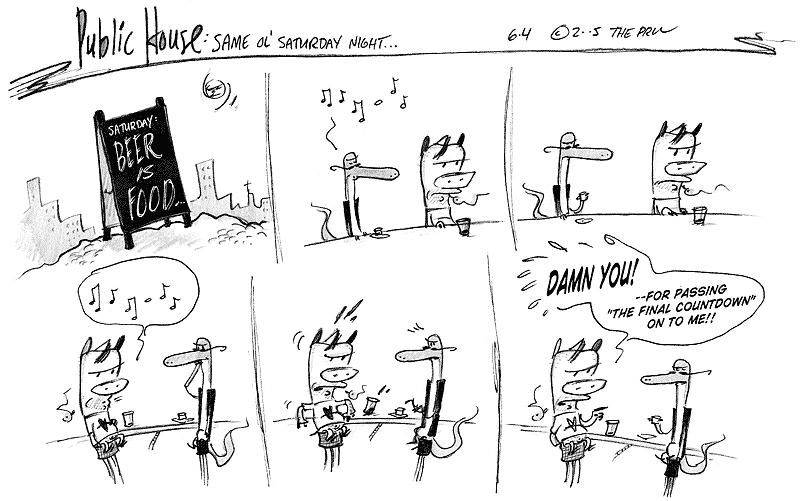 Public House: SAME OL' SATURDAY NIGHT...
6.4 © 2..5 THE PRU
SATURDAY:
BEER
IS
FOOD...
DAMN YOU!
--FOR PASSING
"THE FINAL COUNTDOWN"
ON TO ME!!